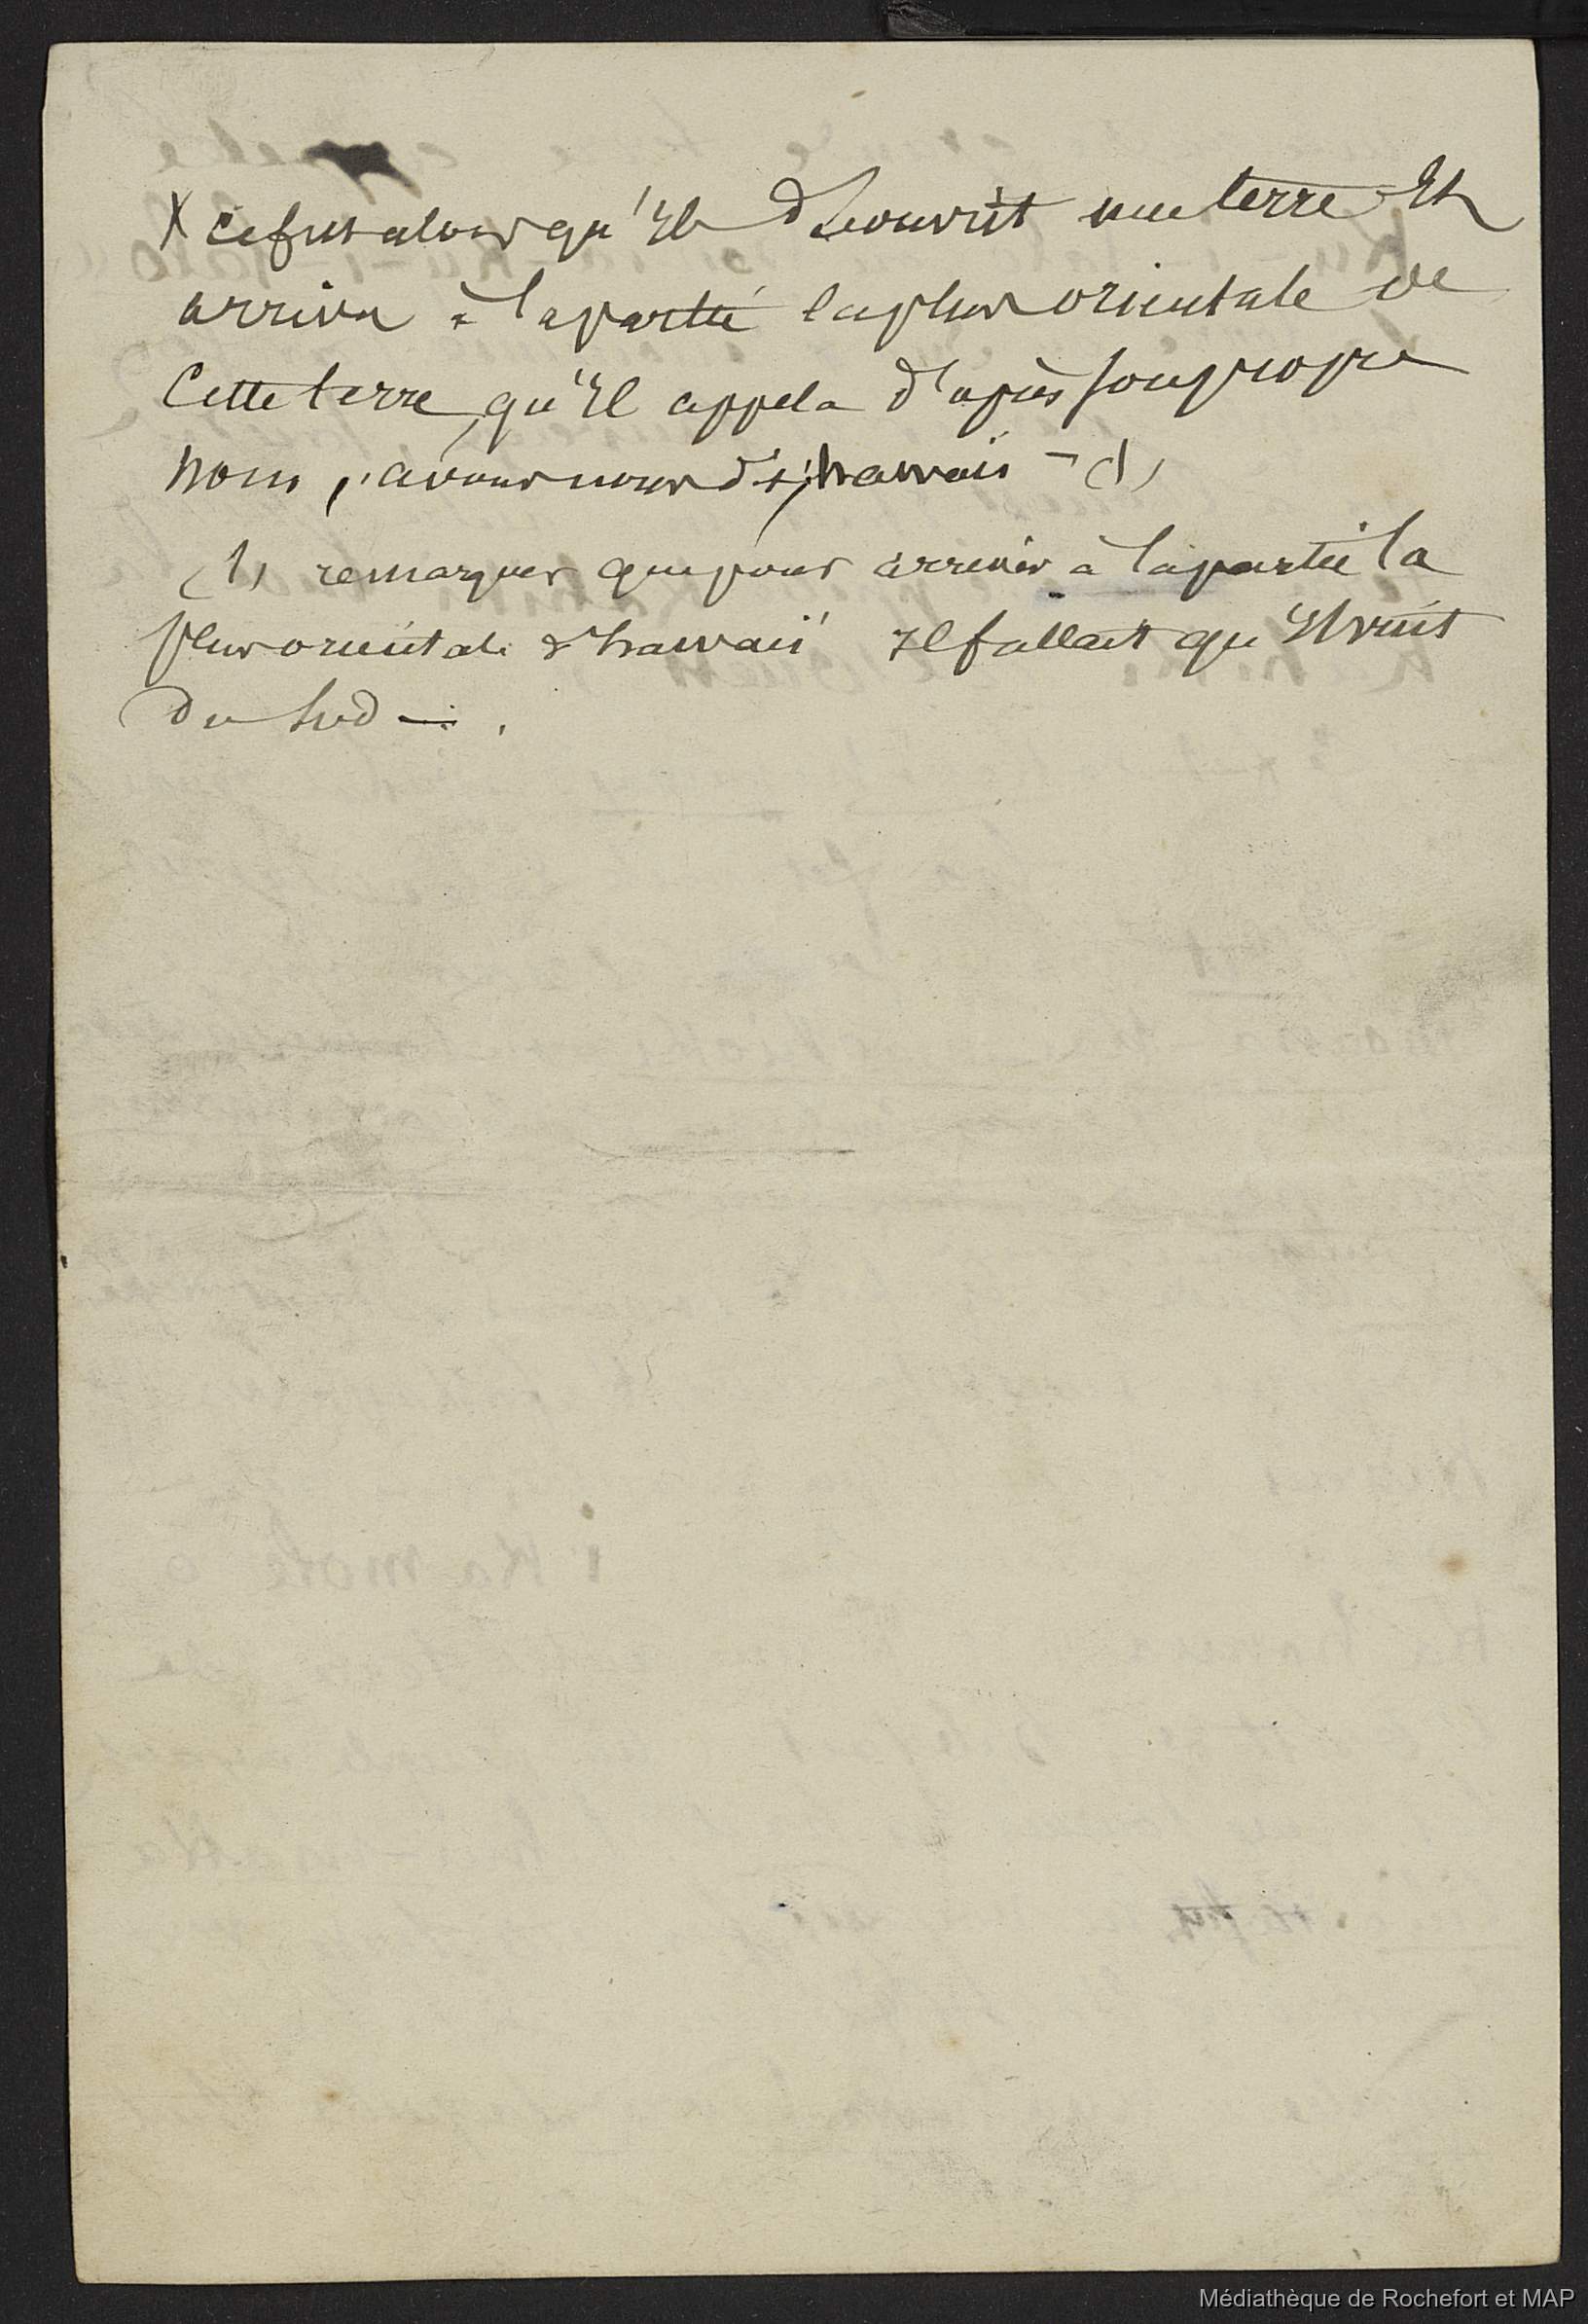 X ce fut alors qu'Il découvrit une terre Et
arriva à la partie la plus orientale de
Cette terre, qu'Il appela d'après son propre
nom, hawaii - (1)
(1) remarquer que pour arriver à la partie la
plus orientale d'hawaii Il fallait qu'Il vint
du Sud -.
Médiathèque de Rochefort et MAP